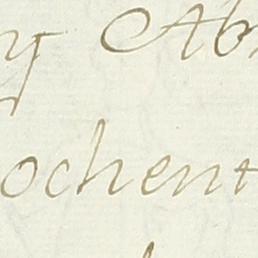 y Ab
ochent